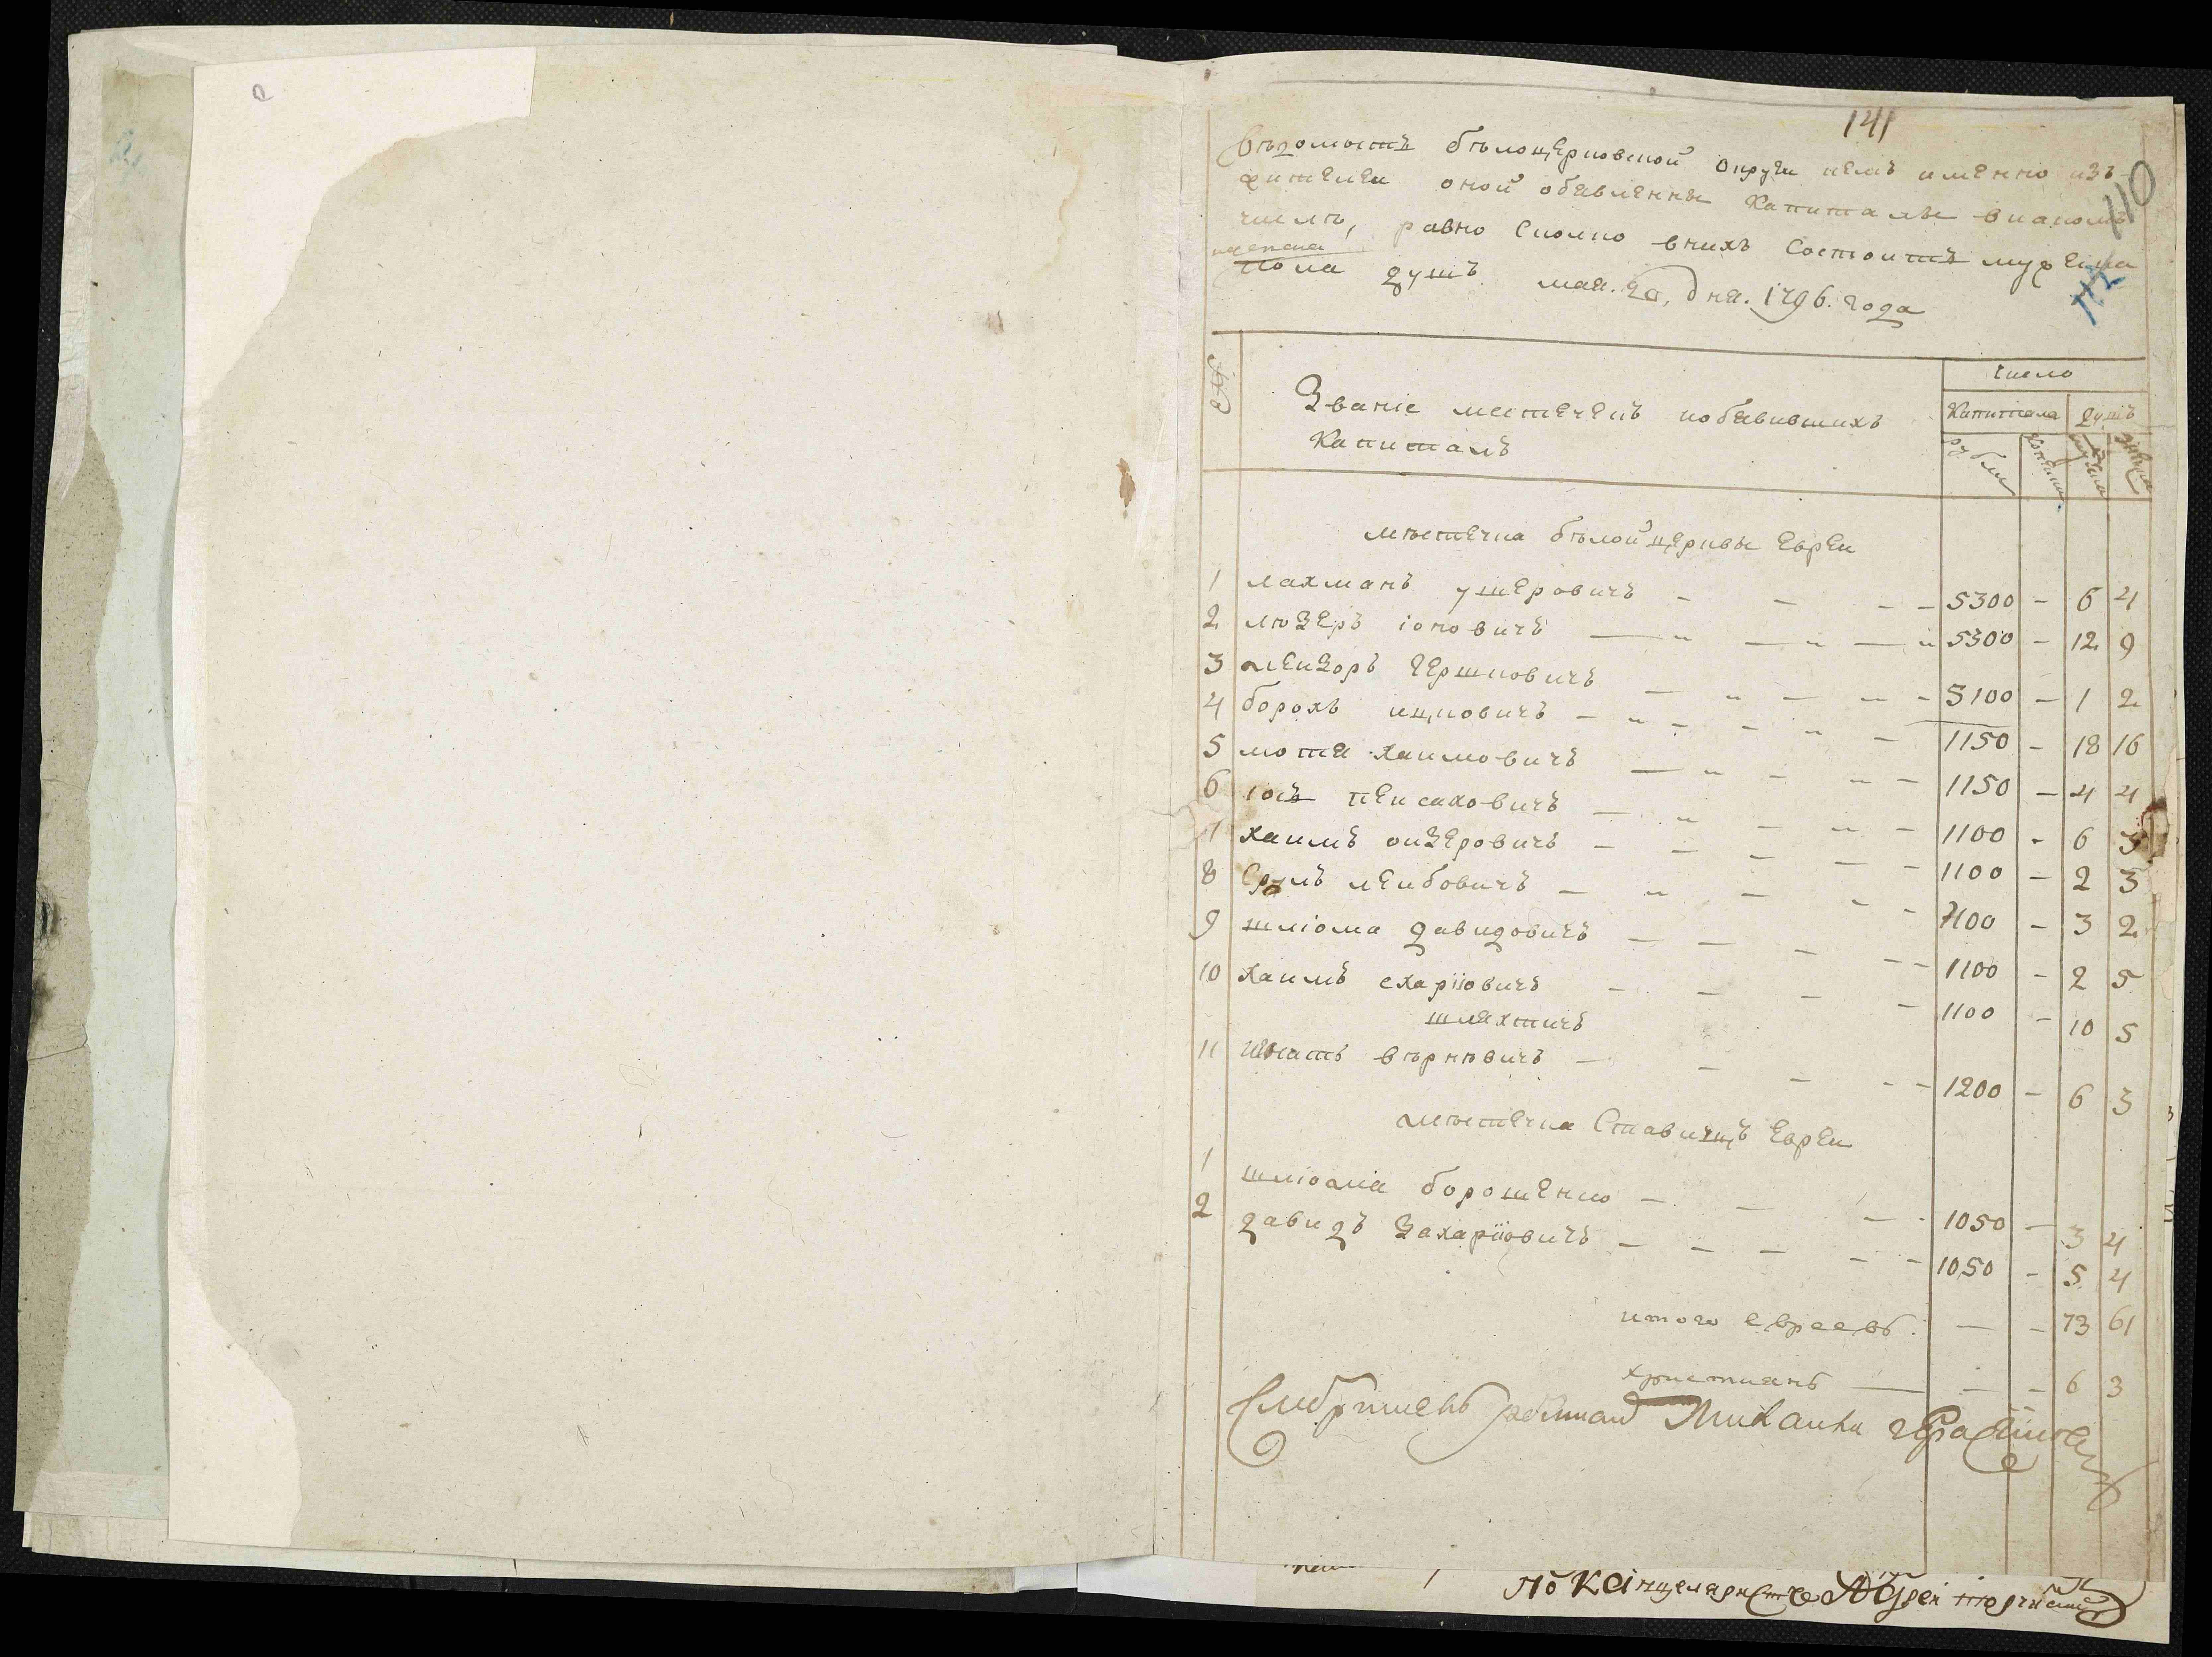 141
110
112
Вѣдомость бѣлоцерковской округи кемъ имѣнно изъ
жителеи оной обявленны капиталы вкакомъ
числѣ, равно сколко внихъ состоитъ мужеска
и женска
пола душъ мая. 20, дня. 1796. года
Число
Званіе местечекъ иобявившихъ
капиталъ
Капитала душъ
рубли копѣики мужеска женска
мѣстечка бѣлой церквы Евреи
1 лахманъ ушеровичъ - - - - 5300 - 6 4
2 люзеръ іоновичъ - - - 5300 - 12 9
3 леизоръ гершковичъ - - - 5100 - 1 2
4 борохъ ицковичъ - - - - 1150 - 18 16
5 мотя хаимовичъ - - - 1150 - 4 4
6 іосъ пеисаховичъ - - - 1100 - 6 3
7 хаимъ оизеровичъ - - - - - 1100 - 2 3
8 Срулъ леибовичъ - - - 1100 - 3 2
9 шліома давидовичъ - - - - - 1100 - 2 5
10 хаимъ схаріювичъ - - - - 1100 - 10 5
шляхтичъ
11 Игнатъ вѣрнѣвичъ - - - - - 1200 - 6 3
мѣстечка Ставищъ Евреи
1 шліома борошенко - - - - 1050 - 3 4
2 давидъ Захаріювичъ - - - - - 1050 - 5 4
итого евреевъ. - - 73 61
христианъ - - - 6 3
Михаила
по канцеляристъ